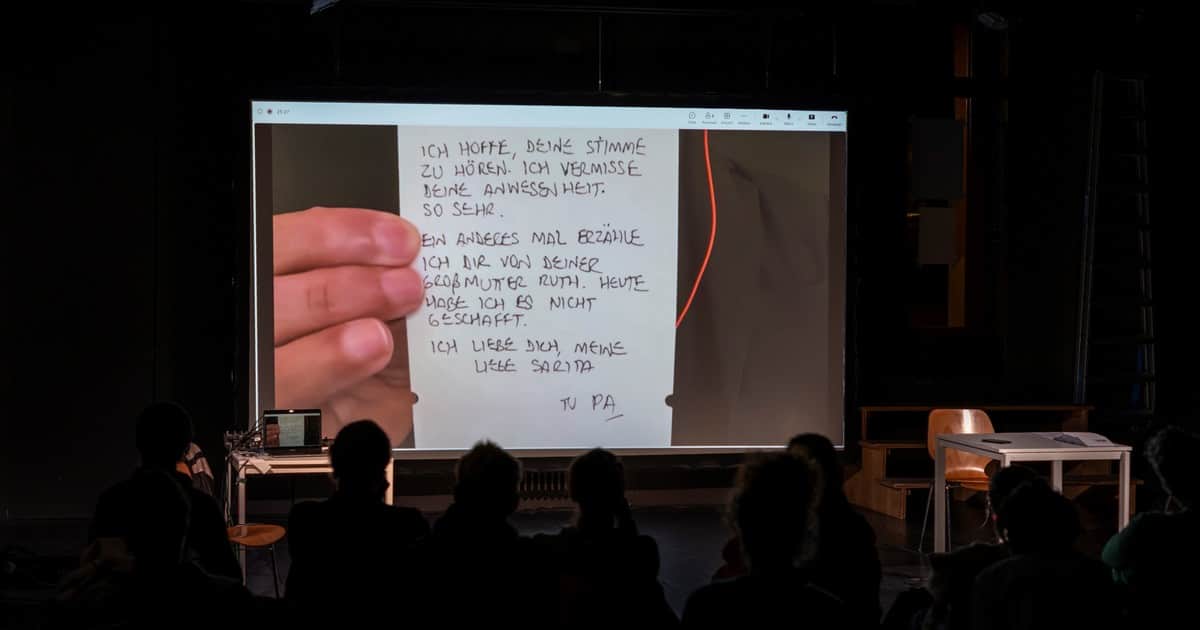 ICH HOFFE, DEINE STIMME
ZU HÖREN. ICH VERMISSE
DEINE ANWESENHEIT.
SO SEHR.
EIN ANDERES MAL ERZÄHLE
ICH DIR VON DEINER
GROßMUTTER RUTH. HEUTE
HABE ICH ES NICHT
GESCHAFFT.
ICH LIEBE DICH, MEINE
LIEBE SARITA
TU PA